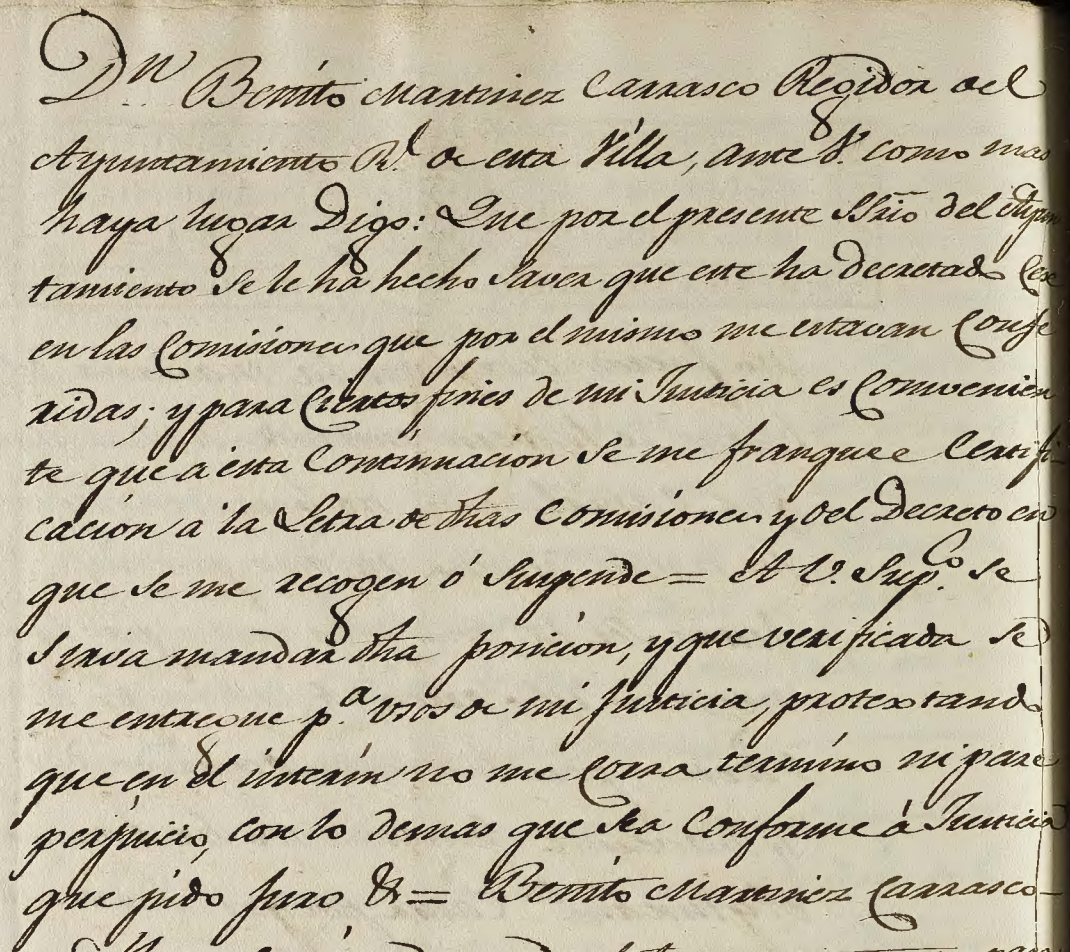 Dn Benito Martinez Carrasco Regidor del
Ayuntamiento Rl. de esta Villa, ante V. como mas
haya lugar Digo: Que por el presente SSrio del Ayun
tamiento se le ha hecho saver que este ha decretado Cese
en las Comisiones que por el mismo me estavan Confe
ridas; y para Ciertos fines de mi Justicia es Convenien
te que a esta Continuacion se me franquee Certifi-
cacion à la Letra de dhas Comisiones y del Decreto en
que se me recogen ó Suspende = A V. Supco. se
sirva mandar dha posicion, y que verificada se
me entregue pa. usos de mi Justicia, protextando
que en el interin no me Corra termino ni pare
perjuicio, con lo demas que sea Conforme á Justicia
que pido Juro & = Benito Martinez Carrasco-